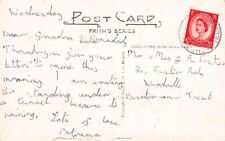 Wednesday
POST CARD
FRITH'S SERIES
Dear Grandma & Grandad
Thankyou for your
letter. It came this
morning. I am writing
this standing under
a tunnel because its
raining. Lots of love
Patricia
Mr & Mrs J R Foster
2, Foster Role
Woodville
Burton on Trent